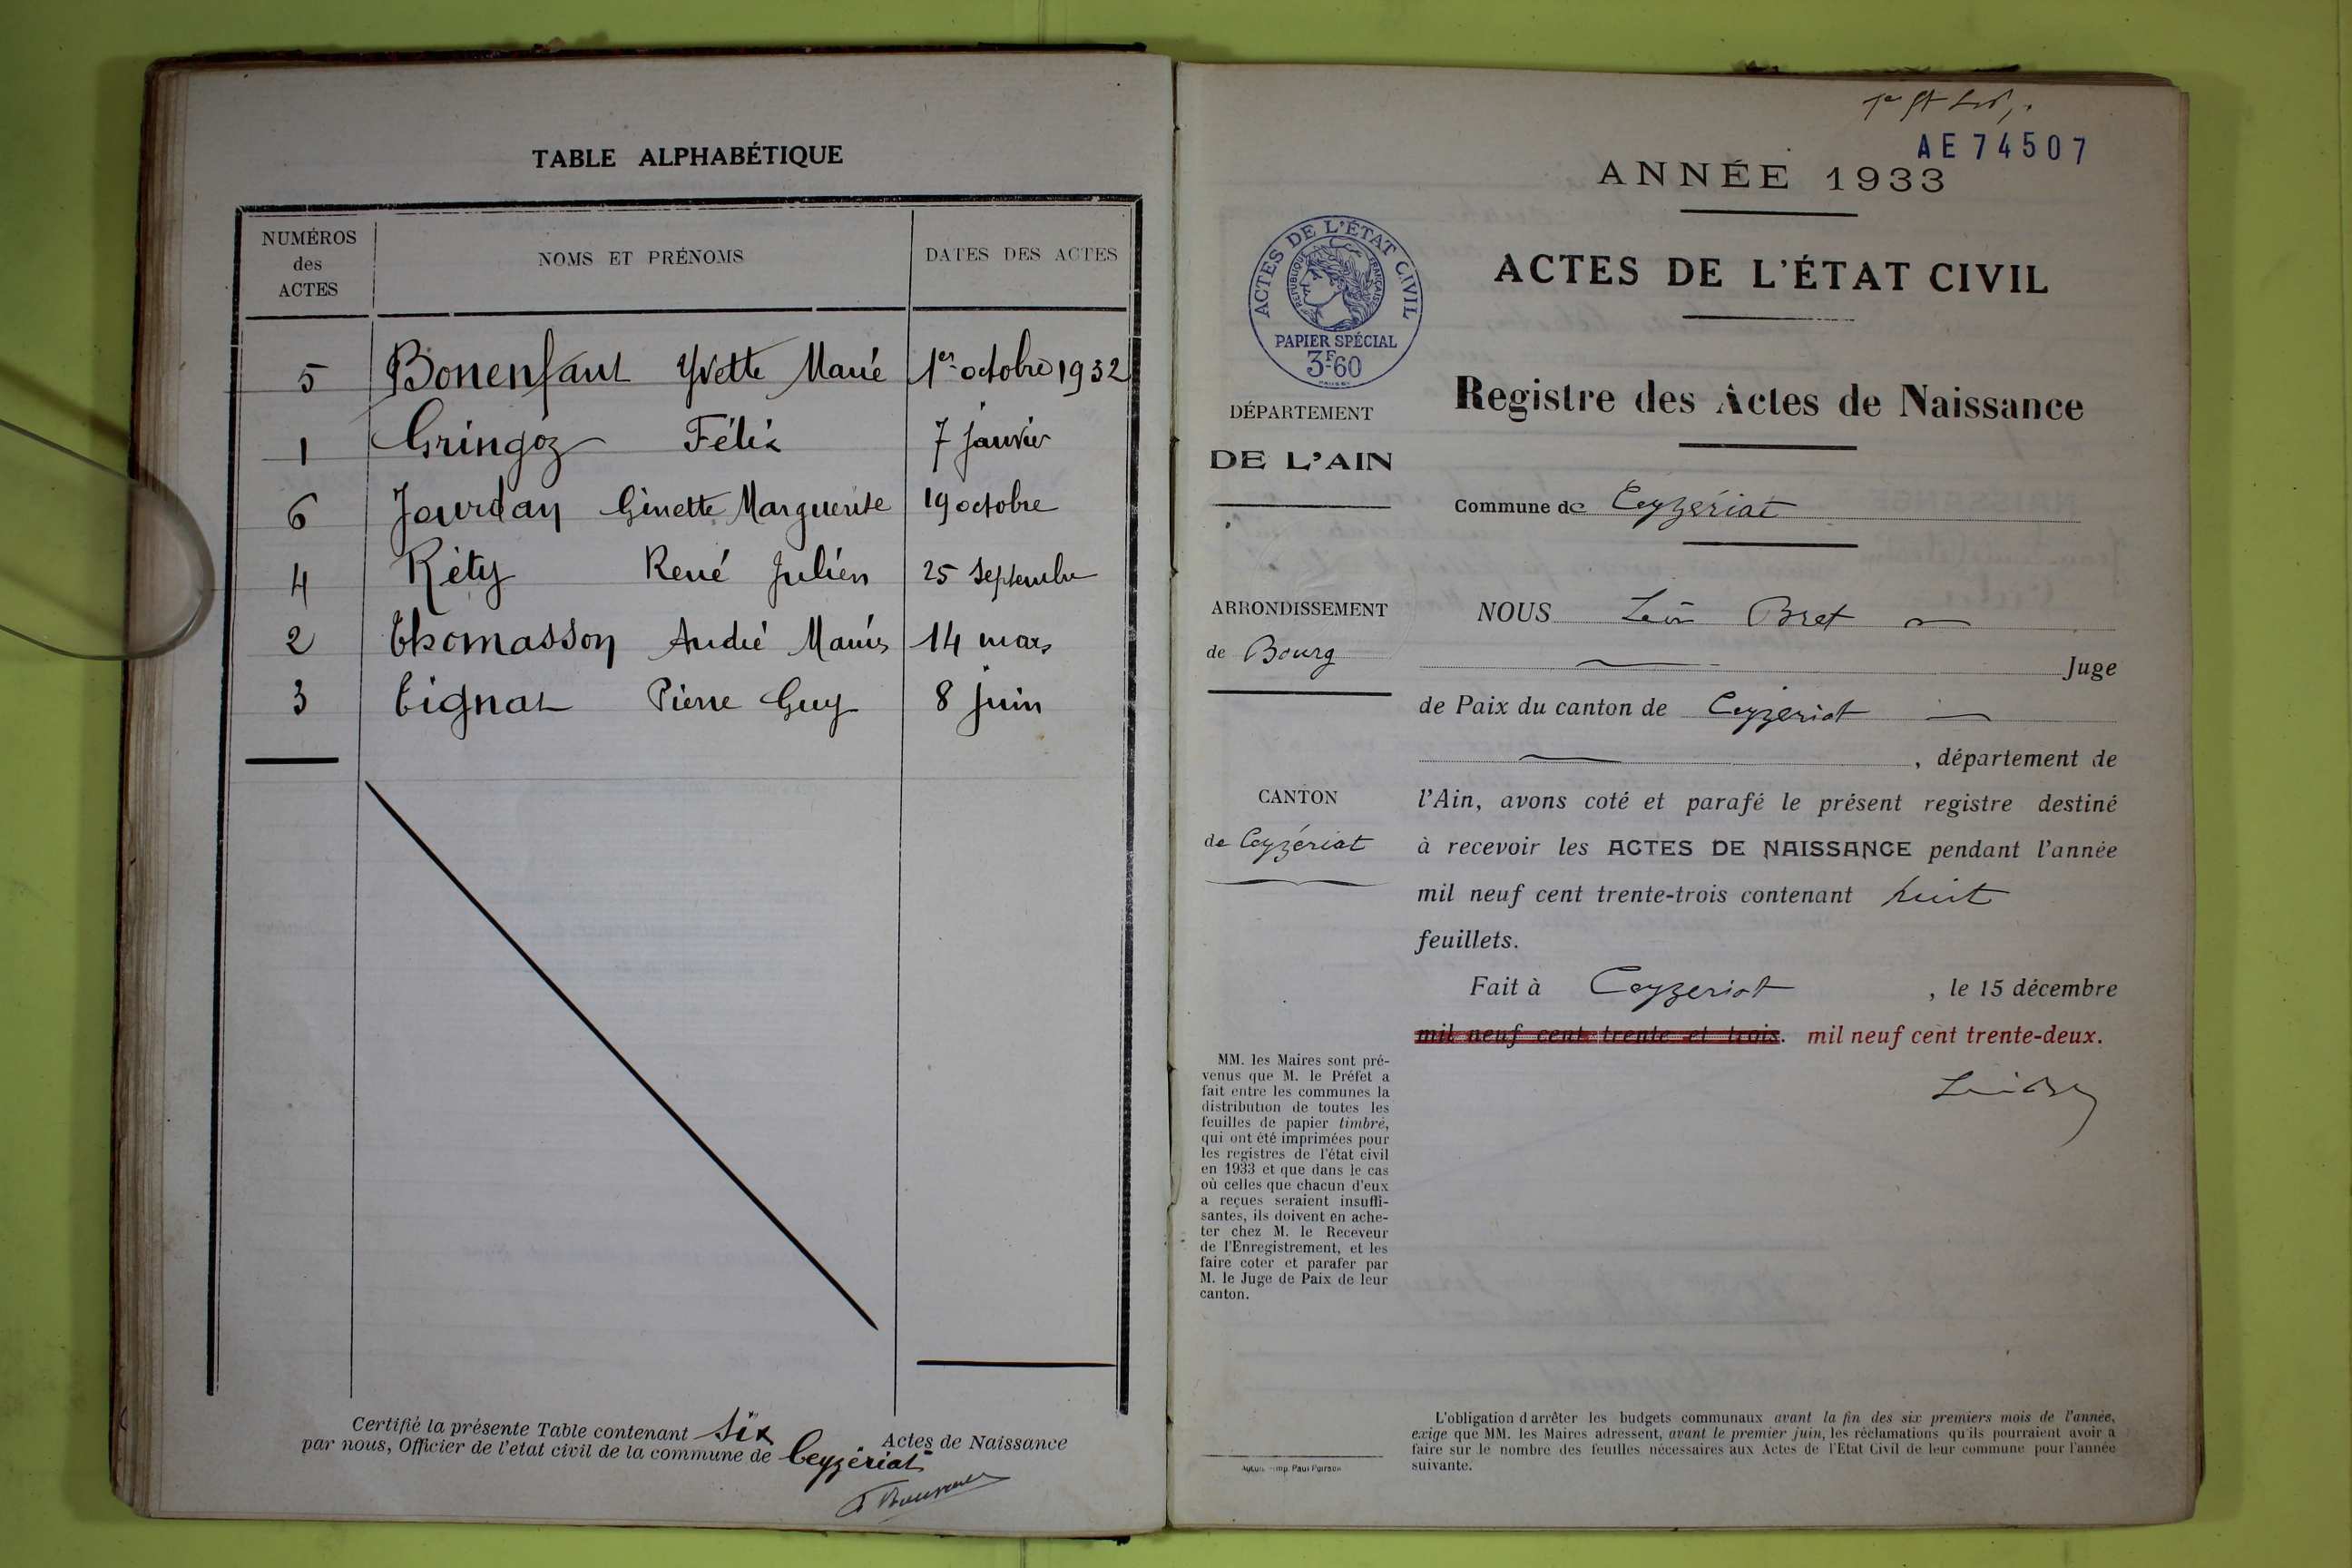 TABLE ALPHABÉTIQUE
NUMÉROS des ACTES
NOMS ET PRÉNOMS
DATES DES ACTES
5 Bonenfant Yvette Marie 1er octobre 1932
1 Gringoz Félix 7 janvier
6 Jourdan Ginette Marguerite 19 octobre
4 Réty René Julien 25 septembre
2 Thomasson André Marius 14 mars
3 Tignat Pierre Guy 8 juin
Certifié la présente Table contenant six Actes de Naissance
par nous, Officier de l'état civil de la commune de Ceyzériat
AE 74507
ANNÉE 1933
ACTES DE L'ÉTAT CIVIL
Registre des Actes de Naissance
ACTES DE L'ÉTAT CIVIL
RÉPUBLIQUE FRANÇAISE
PAPIER SPÉCIAL
3F60
DÉPARTEMENT
DE L'AIN
ARRONDISSEMENT
de Bourg
CANTON
de Ceyzériat
MM. les Maires sont pré-
venus que M. le Préfet a
fait entre les communes la
distribution de toutes les
feuilles de papier timbré,
qui ont été imprimées pour
les registres de l'état civil
en 1933 et que dans le cas
où celles que chacun d'eux
a reçues seraient insuffi-
santes, ils doivent en ache-
ter chez M. le Receveur
de l'Enregistrement, et les
faire coter et parafer par
M. le Juge de Paix de leur
canton.
Imp. Paul
Commune de Ceyzériat
NOUS Léon Bret
Juge
de Paix du canton de Ceyzeriat
, département de
l'Ain, avons coté et parafé le présent registre destiné
à recevoir les ACTES DE NAISSANCE pendant l'année
mil neuf cent trente-trois contenant huit
feuillets.
Fait à Ceyzeriat , le 15 décembre
mil neuf cent trente et trois. mil neuf cent trente-deux.
L'obligation d'arrêter les budgets communaux avant la fin des six premiers mois de l'année,
exige que MM. les Maires adressent, avant le premier juin, les réclamations qu'ils pourraient avoir à
faire sur le nombre des feuilles nécessaires aux Actes de l'Etat Civil de leur commune pour l'année
suivante.